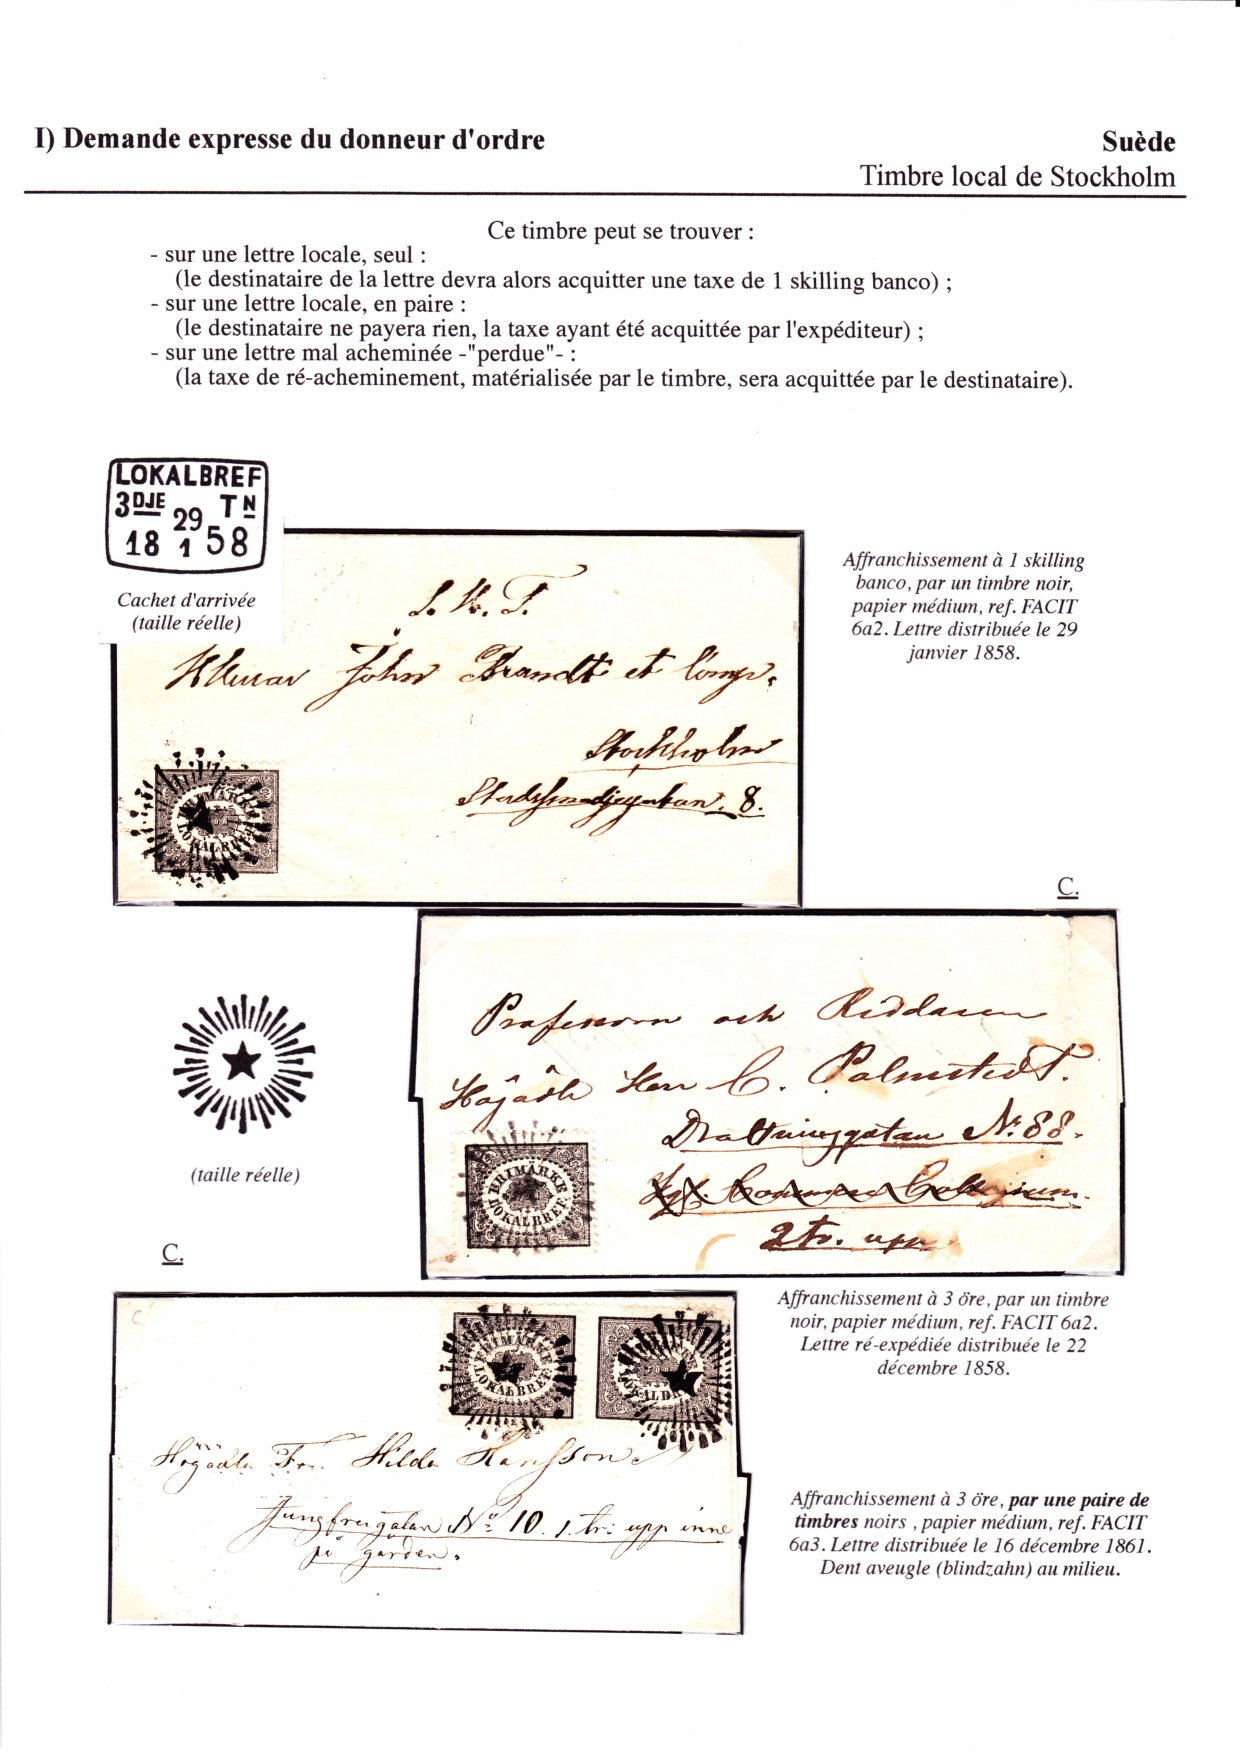 I) Demande expresse du donneur d'ordre
Suède
Timbre local de Stockholm
Ce timbre peut se trouver :
- sur une lettre locale, seul :
(le destinataire de la lettre devra alors acquitter une taxe de 1 skilling banco) ;
- sur une lettre locale, en paire :
(le destinataire ne payera rien, la taxe ayant été acquittée par l'expéditeur) ;
- sur une lettre mal acheminée -"perdue"- :
(la taxe de ré-acheminement, matérialisée par le timbre, sera acquittée par le destinataire).
LOKALBREF
3DJE 29 TN
18 1 58
Cachet d'arrivée
(taille réelle)
S. H. T.
John Brandt et Comp.
Stockholm
8.
FRIMÄRKE
LOKALBREF
Affranchissement à 1 skilling
banco, par un timbre noir,
papier médium, ref. FACIT
6a2. Lettre distribuée le 29
janvier 1858.
C.
Professorn och Riddaren
Högädle Herr C. Palmstedt.
Drottninggatan No. 88.
2 tr. upp
FRIMÄRKE
LOKALBREF
(taille réelle)
C.
Affranchissement à 3 öre, par un timbre
noir, papier médium, ref. FACIT 6a2.
Lettre ré-expédiée distribuée le 22
décembre 1858.
FRIMÄRKE
LOKALBREF
Högädla Fr. Hilda Hansson
Jungfrugatan No 10. 1 tr: upp inne
på gården.
Affranchissement à 3 öre, par une paire de
timbres noirs , papier médium, ref. FACIT
6a3. Lettre distribuée le 16 décembre 1861.
Dent aveugle (blindzahn) au milieu.